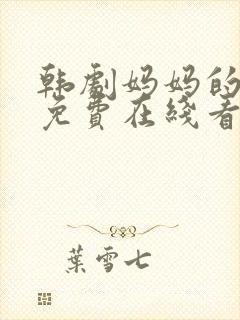 韩剧妈妈的
免費在线看
葉雪七